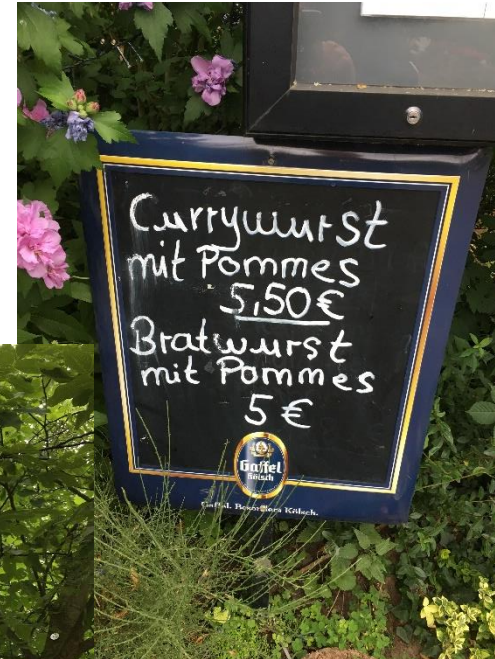 Currywurst
mit Pommes
5,50€
Bratwurst
mit Pommes
5€
Gaffel
Kölsch
Gaffel. Besonders Kölsch.